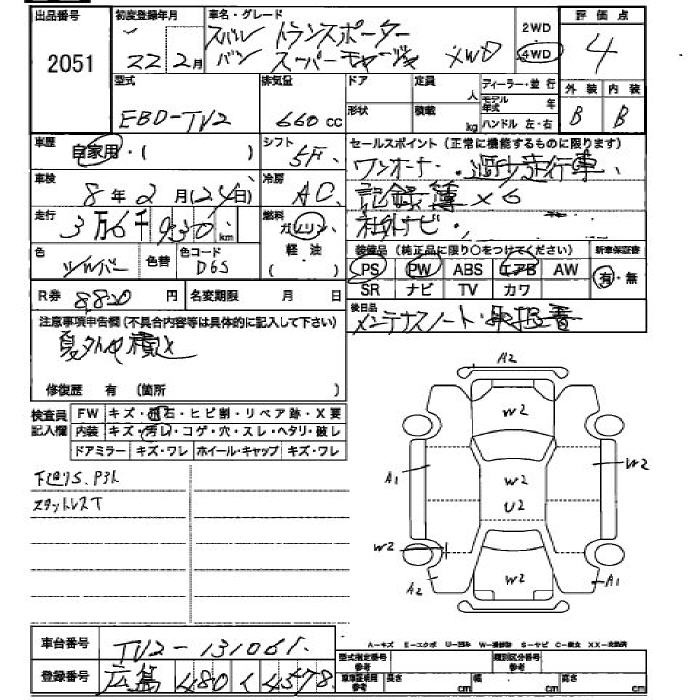 出品番号 初度登録年月 車名・グレード 2WD 評価点
2051 22 2月 スバル トランスポーター 4WD 4
バン スーパーチャージャ 4WD
型式 排気量 ドア 定員 人 ディーラー・並行 外装 内装
EBD-TV2 660cc 形状 積載 kg モデル年式 年 B B
ハンドル 左・右
車歴 自家用・( ) シフト 5F セールスポイント(正常に機能するものに限ります)
ワンオーナー・過少走行車、
車検 8年2月(24日) 冷房 AC 記録簿×6
走行 3万6千930km 燃料 ガソリン 軽油 ( ) 社外ナビ・
色 シルバー 色替 色コード D6S 装備品(純正品に限り○をつけてください) 新車保証書
PS PW ABS エアB AW 有・無
SR ナビ TV カワ
R券 8820円 名変期限 月 日 後日品 メンテナスノート・取扱書
注意事項申告欄(不具合内容等は具体的に記入して下さい)
夏外中積込
修復歴 有 (箇所 )
検査員記入欄 FW キズ・飛石・ヒビ割・リペア跡・X要
内装 キズ・汚れ・コゲ・穴・スレ・ヘタリ・破し
ドアミラー キズ・ワレ ホイール・キャップ キズ・ワレ
下廻りS.
スタットレスT
A2
W2
A1 W2 W2
U2
W2
A2 W2 A1
車台番号 TV2-131061
A-キズ E-エクボ U-凹み W-補修跡 S-サビ C-腐食 XX-交換済
登録番号 広島 480 く 4578
型式指定番号 参考 類別区分番号 参考
車庫証明用 参考 長さ cm 幅 cm 高さ cm